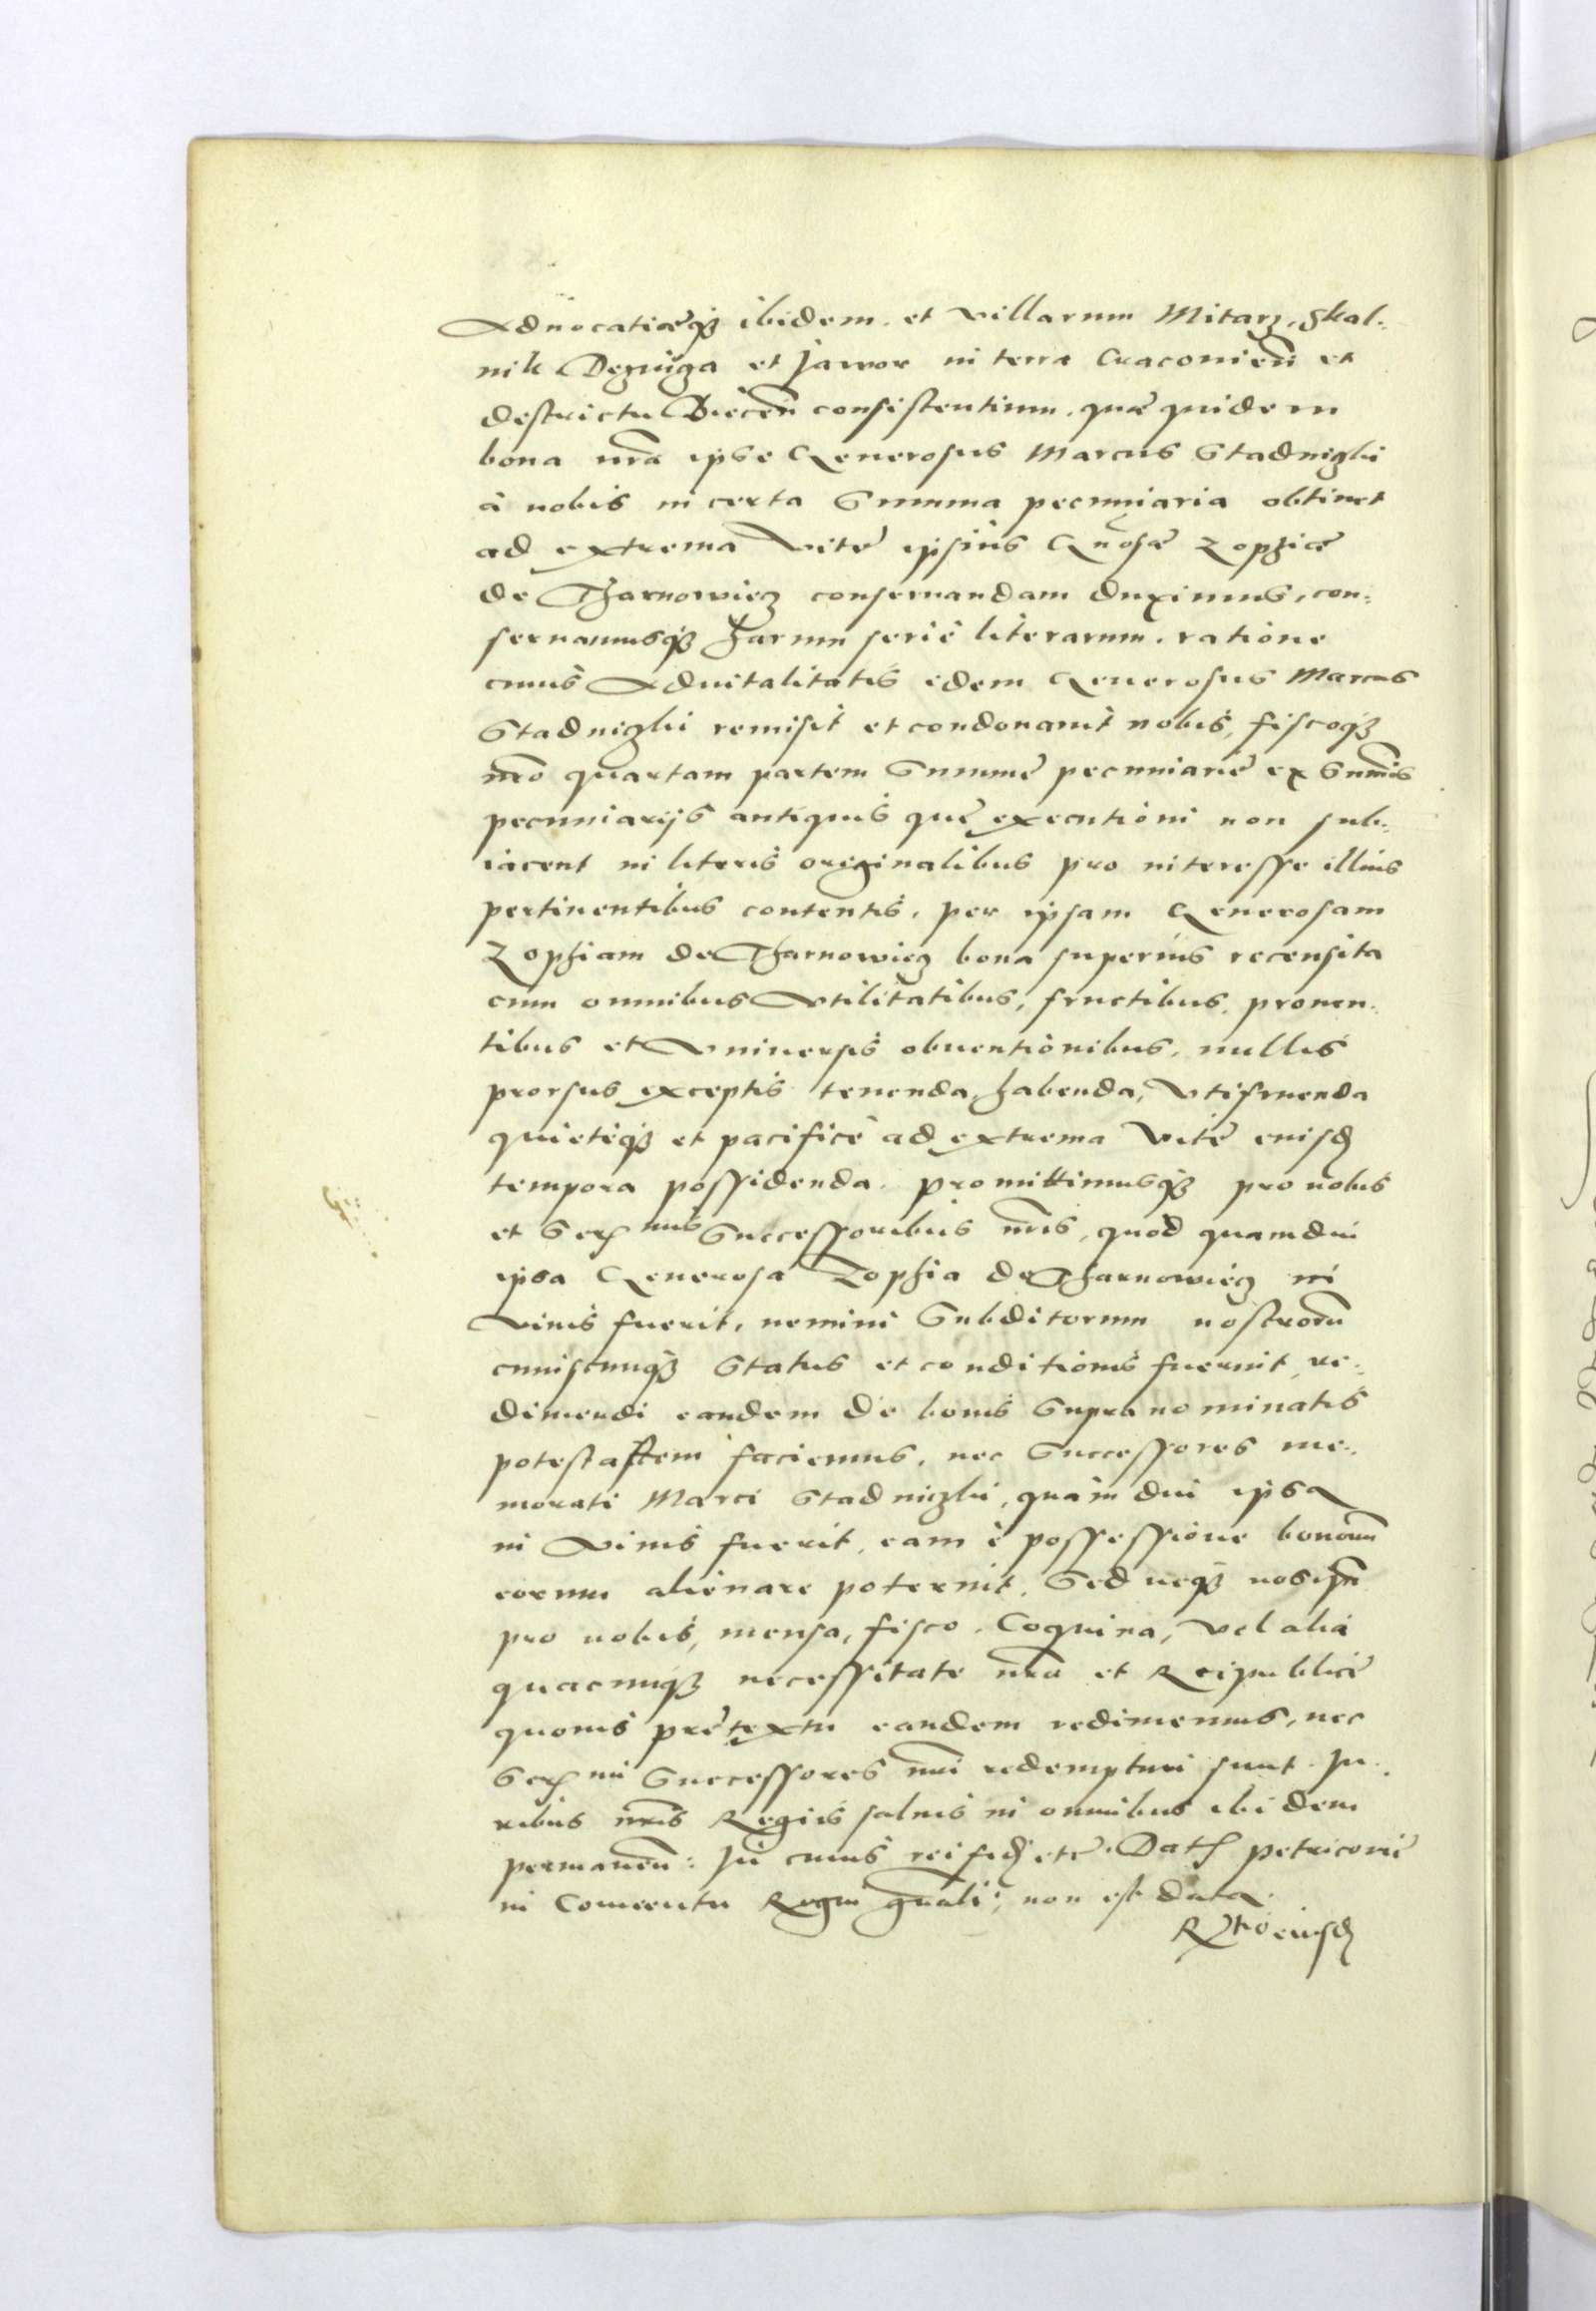 Aduocatiæq3 ibidem. et villarum Mitarz, Skal-
nik Dezniga et Jawor in terra Cracouien̄ et
destrictu Biecen̄ consistentium. quæ quidem
bona nr̄a ipse Generosus Marcus Stadnizki
à nobis in certa Summa pecuniaria obtinet
ad extrema vitę ipsius Gn̄osæ Zophiæ
de Tharnowiecz conseruandam duximus, con-
seruamusq3 harum seriè literarum. ratione
cuius Aduitalitatis idem Generosus Marcus
Stadnizki remisit et condonauit nobis, fiscoq3
nr̄o quartam partem Summę pecuniarię ex Summis
pecuniarijs antiquis quę executioni non sub-
iacent in literis originalibus pro interesse illius
pertinentibus contentis, per ipsam Generosam
Zophiam de Tharnowiecz bona superius recensita
cum omnibus vtilitatibus, fructibus, prouen-
tibus et vniuersis obuentionibus, nullis
prorsus exceptis tenenda, habenda, vtifruenda
quietèq3 et pacificè ad extrema vitę eiusd
tempora possidenda. promittimusq3 pro nobis
et Ser mis Successoribus nr̄is, quòd quamdiu
ipsa Generosa Zophia de Tharnowiecz in
viuis fuerit, nemini Subditorum nostrorū
cuiuscunq3 Status et conditionis fuerint, re-
dimendi eandem de bonis Supra nominatis
potestatem faciemus, nec Successores me-
morati Marci Stadnizki, quàm diu ipsa
in viuis fuerit, eam è possessione bonorum
eorum alienare poterint. Sed neq3 nos ipsi
pro nobis, mensa, fisco. Coquina, vel alia
quacunq3 necessitate nr̄a et Reipublicę
quouis prętextu eandem redimemus, nec
Ser mi Successores nr̄i redempturi sunt. Ju-
ribus nr̄is Regiis saluis in omnibus ibidem
permanen̄: In cuius rei fid etc. Dat Petricouię
in Conuentu Regni gn̄ali; non est data.
Rtio eiusd